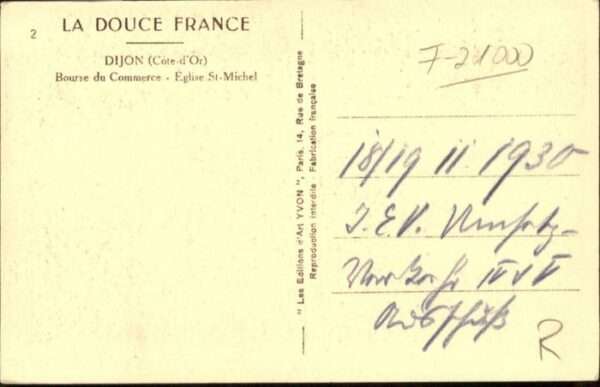 2
LA DOUCE FRANCE
DIJON (Côte-d'Or)
Bourse du Commerce - Église St-Michel
"Les Editions d'Art YVON", Paris, 14, Rue de Bretagne
Reproduction interdite - Fabrication française
F-21000
18/19 11. 1930
I.E.V.
R